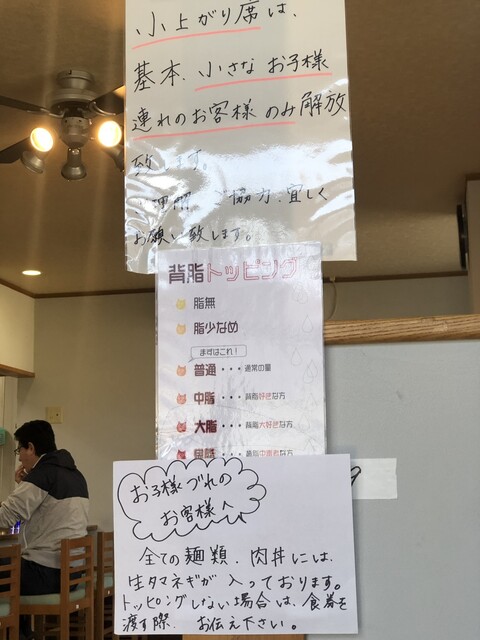 小上がり席は、
基本、小さなお子様
連れのお客様のみ解放
致します。
ご理解 ご協力、宜しく
お願い致します。
背脂トッピング
脂無
脂少なめ
まずはこれ!
普通・・・通常の量
中脂・・・背脂好きな方
大脂・・・背脂大好きな方
・・・背脂中毒な方
お子様づれの
お客様へ
全ての麺類、肉丼には、
生タマネギが入っております。
トッピングしない場合は、食券を
渡す際、お伝え下さい。